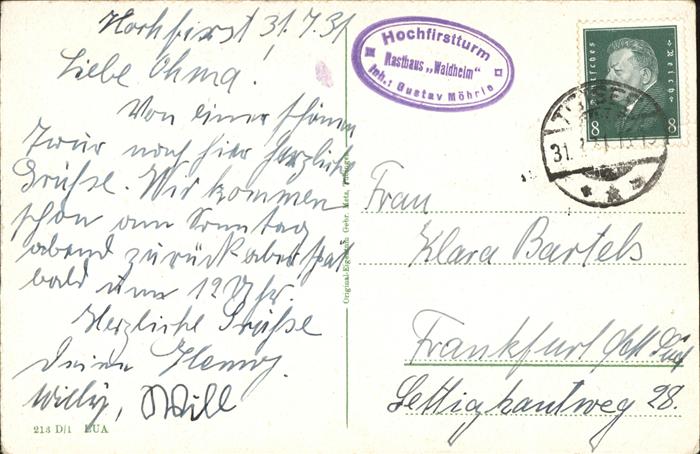 Hochfirst, 31.7.31
Liebe Ohma.
Von einer schönen
Tour nach hier herzliche
Grüße. Wir kommen
schon am Sonntag
abend zurück aber spät
bald um 12 Uhr.
Herzliche Grüße
Deine Henny
Willy, Will
213 D/1 EUA
Original-Eigentum Gebr. Metz, Tübingen
Hochfirstturm
Rasthaus „Waldheim"
Inh.: Gustav Möhrle
Deutsches Reich
8 8
31.
Frau
Klara Bartels
Frankfurt
28.